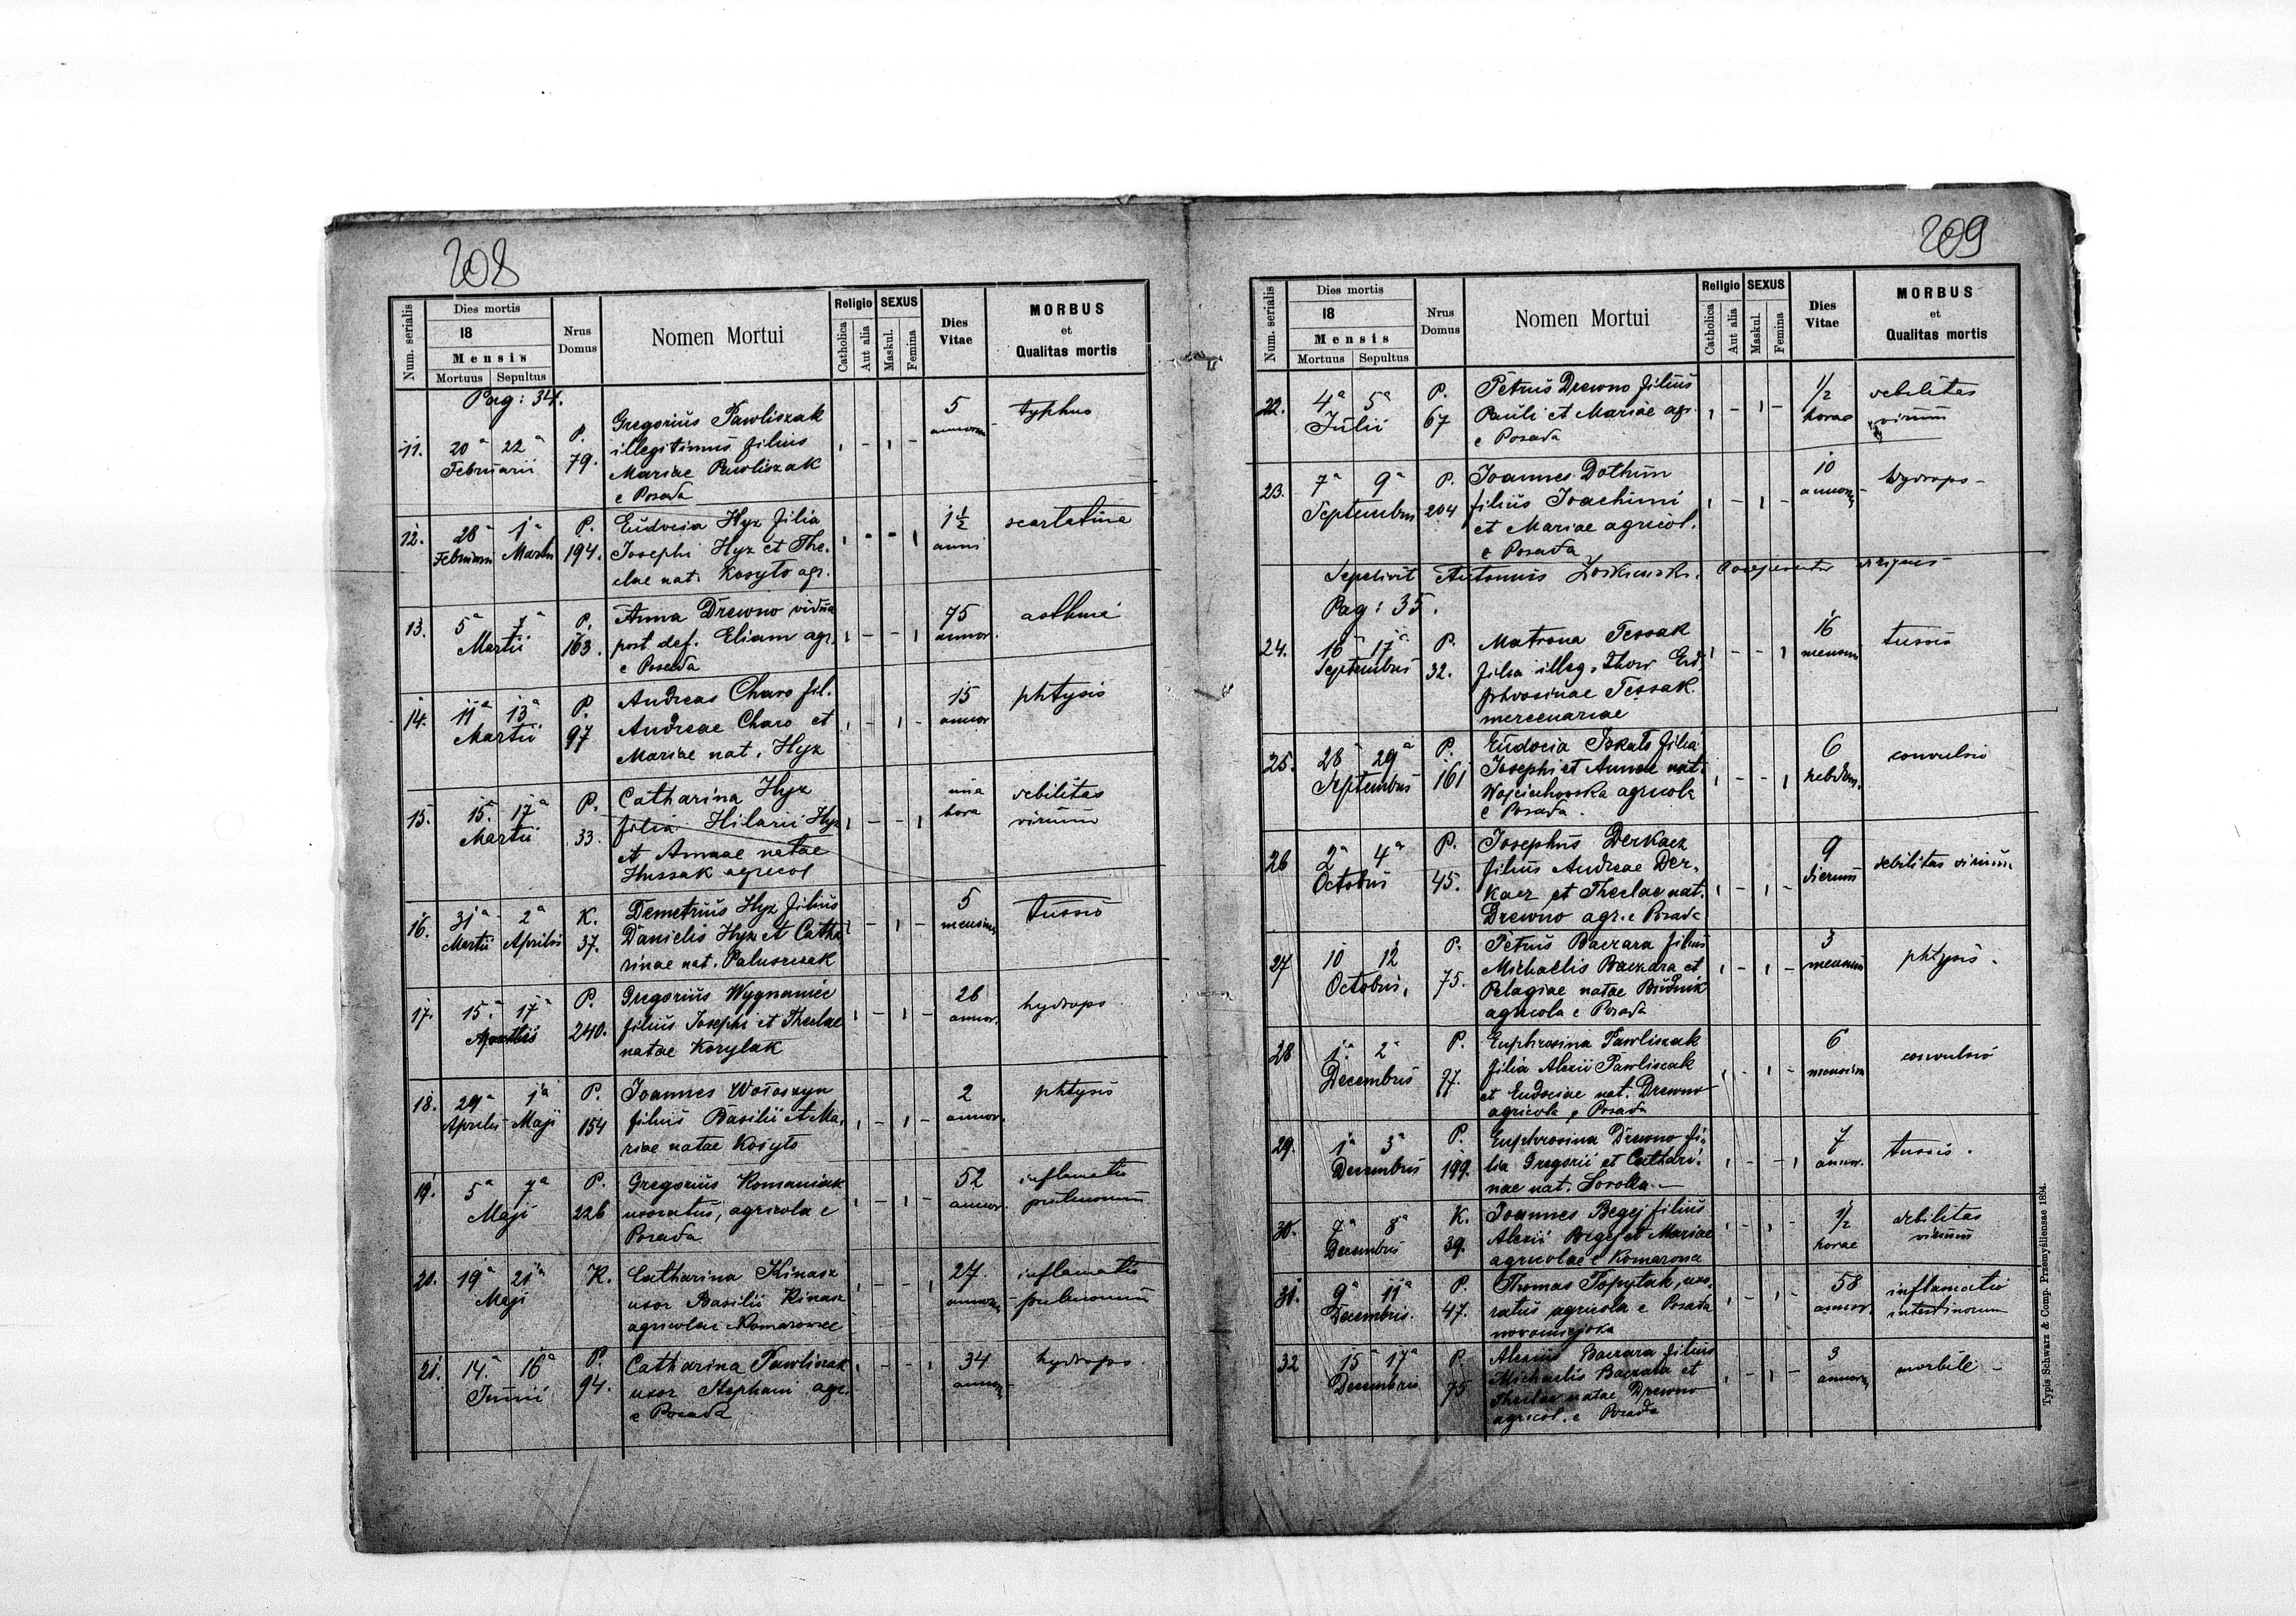 208
Num. serialis
Dies mortis
18
Mensis
Mortuus Sepultus
Nrus Domus
Nomen Mortui
Religio
Catholica
Aut alia
SEXUS
Maskul.
Femina
Dies Vitae
MORBUS
et
Qualitas mortis
Pag: 34.
11. 20ª 22ª Februarii P. 79.
Gregorius Pawliszak
illegitimus filius
Mariae Pawliszak
e Posada
5 annorum typhus
12. 28ª Februarii 1ª Martii P. 194.
Eudocia Hyz filia
Josephi Hyz et The-
clae nat. Kosyto agr.
1½ anni scarlatina
13. 5ª 7ª Martii P. 163.
Anna Drewno vidua
post def. Eliam agr.
e Posada
75 annor. asthma
14. 11ª 13ª Martii P. 97
Andreas Charo fil.
Andreae Charo et
Mariae nat. Hyz
15 annor phtysis
15. 15. 17ª Martii P. 33.
Catharina Hyz
filia Hilarii Hyz
et Annae natae
Hussak agricol
una hora debilitas virium
16. 31ª Martii 2ª Aprilis K. 37.
Demetrius Hyz filius
Danielis Hyz et Catha
rinae nat.
5 mensium tussis
17. 15. 17ª Aprilis P. 240.
Gregorius Wygnaniec
filius Josephi et Theclae
natae Korylak
26 annor. hydrops
18. 29ª Aprilis 1ª Maji P. 154
Joannes Wołoszyn
filius Basilii et Ma-
riae natae Kosyto
2 annor. phtysis
19. 5ª 7ª Maji P. 226
Gregorius Romaniak
uxoratus, agricola e
Posada
52 annor. inflamatio pulmonum
20. 19ª 21ª Maji K.
Catharina Kinasz
uxor Basilii Kinasz
agricolae Komarowce
27. annor. inflamatio pulmonum
21. 14. 16ª Junii P. 94.
Catharina Pawliszak
uxor Stephani agr.
e Posada
34 annor. hydrops.
209
Num. serialis
Dies mortis
18
Mensis
Mortuus Sepultus
Nrus Domus
Nomen Mortui
Religio
Catholica
Aut alia
SEXUS
Maskul.
Femina
Dies Vitae
MORBUS
et
Qualitas mortis
22. 4ª 5ª Julii P. 67
Petrus Drewno filius
Pauli et Mariae agr.
e Posada
1/2 horae debilitas virium
23. 7ª 9ª Septembris P. 204
Joannes Dothun
filius Joachimi
et Mariae agricol.
e Posada
10 annor. hydrops
Sepelivit Antonius
Pag: 35.
24. 16 17ª Septembris P. 32.
Matrona Tessak
filia illeg. Eu
phrosinae Tessak
mercenariae
16 mensium tussis
25. 28 29ª Septembris P. 161
Eudocia filia
Josephi et Annae nat.
Wojciechowska agricola
e Posada.
6 hebdom. convulsio
26 2ª 4ª Octobris P. 45.
Josephus Derkacz
filius Andreae Der-
kacz et Theclae nat.
Drewno agr. e Posada
9 dierum debilitas virium.
27 10 12 Octobris. P. 75.
Petrus Baczara filius
Michaelis Baczara et
Pelagiae natae Budnik
agricola e Posada
3 mensium phtysis.
28 1ª 2ª Decembris P. 77.
Euphrosina Pawliszak
filia Alexii Pawliszak
et Eudociae nat. Drewno
agricola e Posada
6 mensium convulsio
29. 1ª 3ª Decembris P. 199.
Euphrosina Drewno fi-
lia Gregorii et Cathari-
nae nat. Soroka
7 annor. tussis.
30. 7ª 8ª Decembris K. 39.
Joannes Begej filius
Alexii Begej et Mariae
agricolae e Komarowa
1/2 horae debilitas virium
31. 9ª 11ª Decembris. P. 47.
Thomas Topylak, uxo-
ratus agricola e Posada
novomiejska
58 annor. inflamatio intestinorum
32 15ª 17ª Decembris P. 75
Alexius Baczara filius
Michaelis Baczara et
Theclae natae Drewno
agricol. e Posada
3 annor. morbili
Typis Schwarz & Comp. Przemyśliensae 1894.